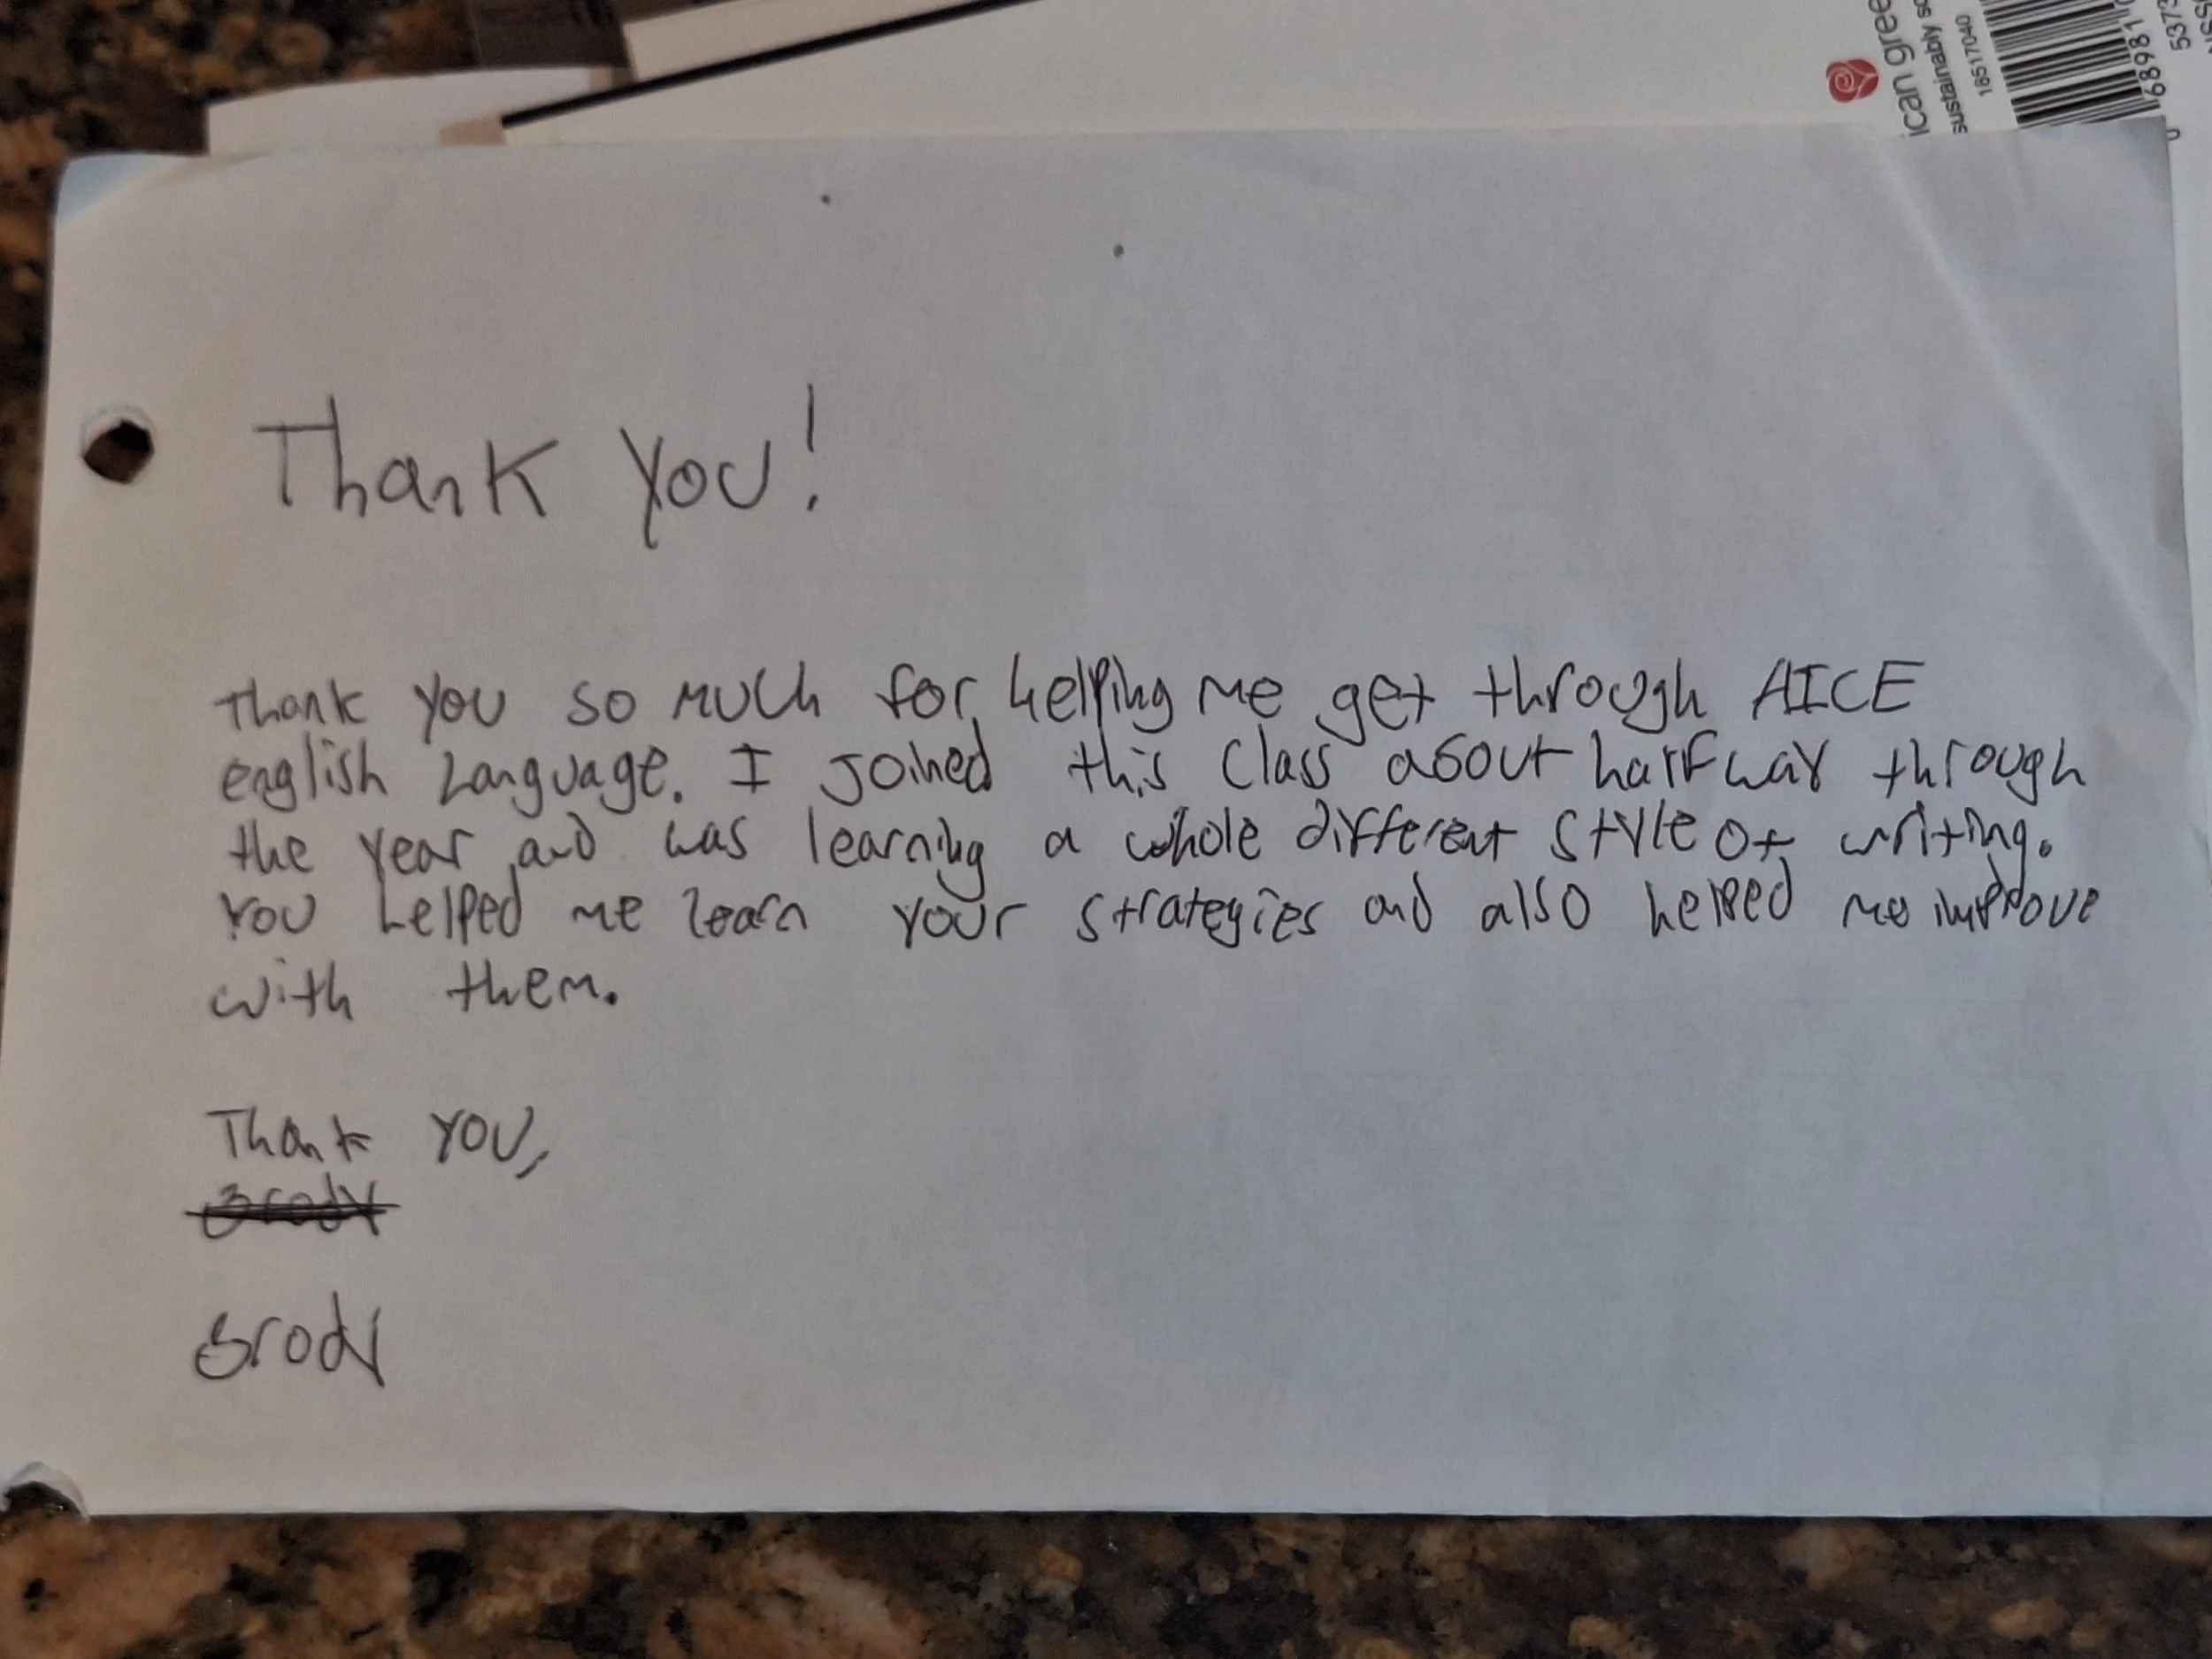 ican gree
sustainably so
18517040
68981
5373
Thank You!
Thank you so much for helping me get through AICE
english Language. I joined this class about halfway through
the year and was learning a whole different style of writing.
You helped me learn your strategies and also helped me improve
with them.
Thank You,
Brody
Brody